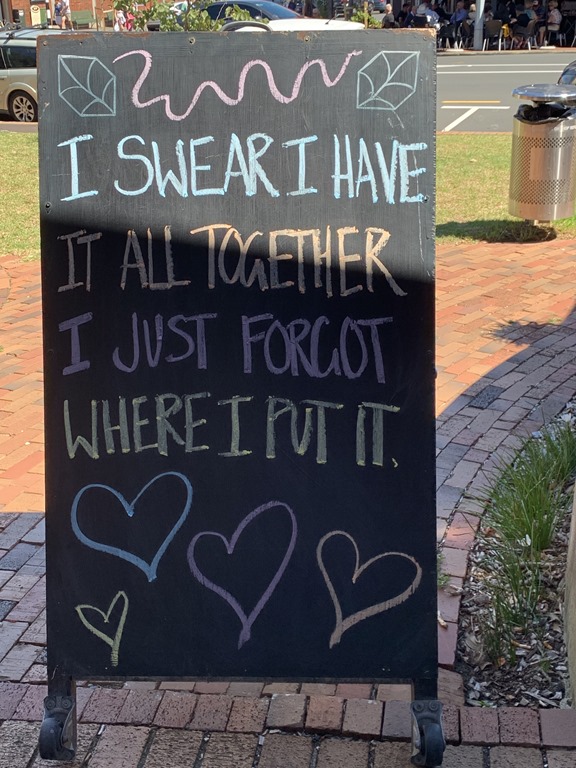 I SWEAR I HAVE
IT ALL TOGETHER
I JUST FORGOT
WHERE I PUT IT.